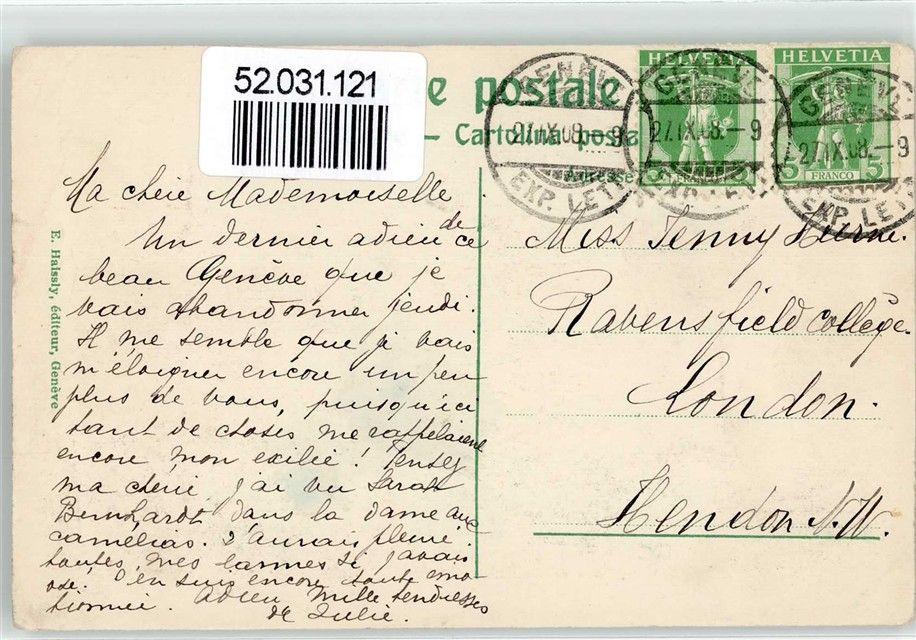 52.031.121
e postale
Cartolina poste
Adresse
GENÈVE
27.IX.08.–9
EXP. LETT.
HELVETIA
GENÈVE
27.IX.08.–9
EXP. LETT.
5 FRANCO 5
HELVETIA
GENÈVE
27.IX.08.–9
EXP. LETT.
5 FRANCO 5
E. Haissly, éditeur, Genève
Ma chère Mademoiselle
Un dernier adieu de ce
beau Genève que je
vais abandonner jeudi.
Il me semble que je vais
m'éloigner encore un peu
plus de vous, puisqu'ici
tant de choses me rappelaient
encore mon exilée! Pensez
ma chérie j'ai vu Sarah
Bernhardt dans la dame aux
camélias. J'aurais pleuré
toutes mes larmes si j'avais
osé. J'en suis encore toute émo-
tionnée. Adieu mille tendresses
de Julie.
Miss Jenny
Ravensfield collège.
London.
Hendon N.W.